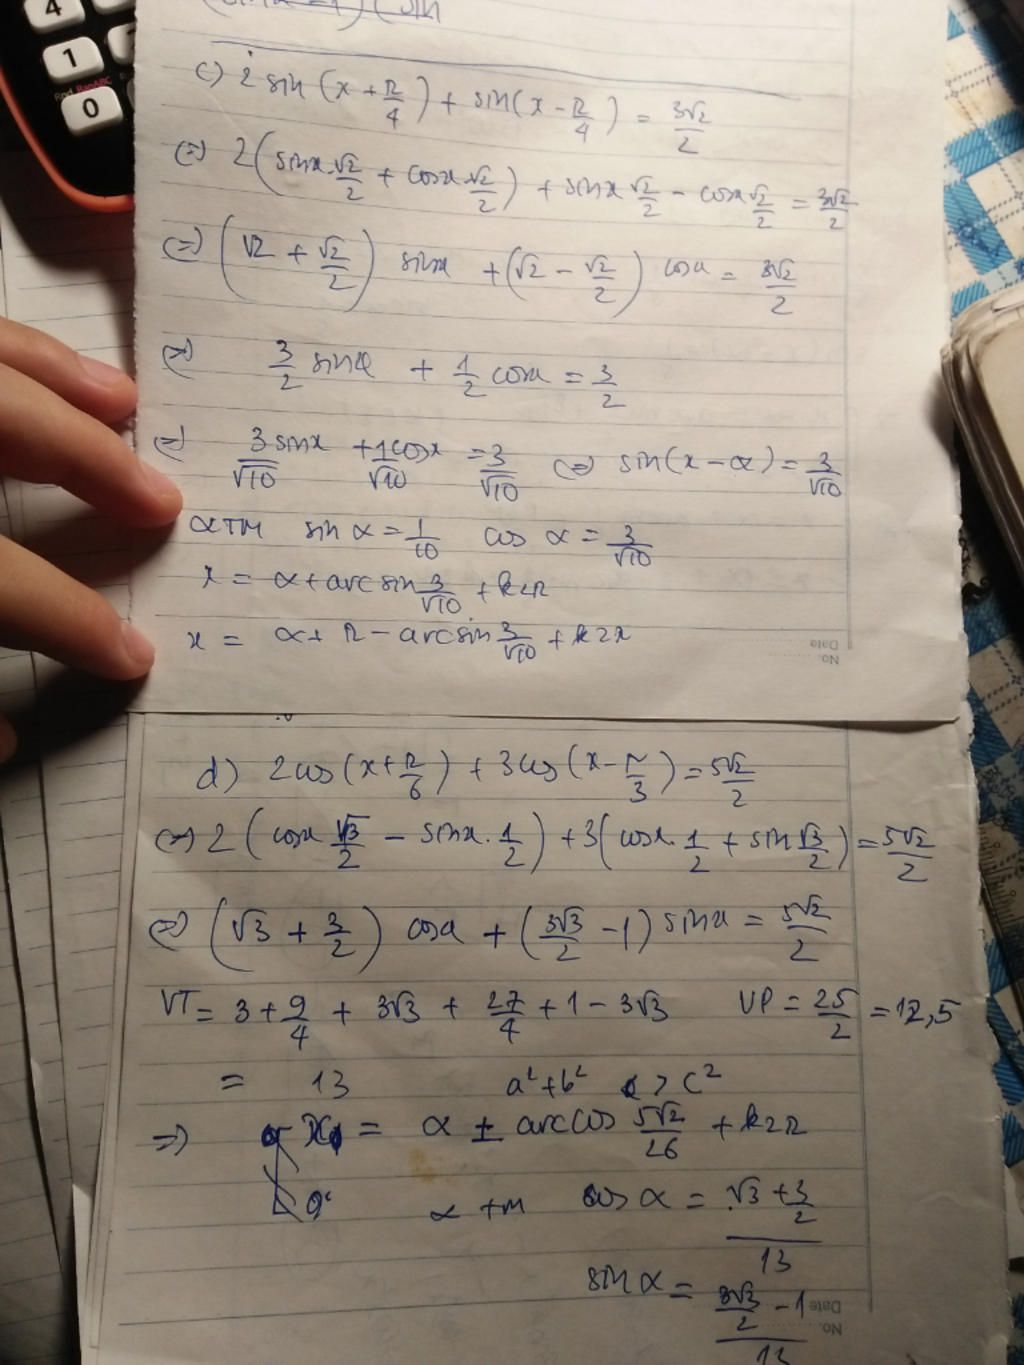 4
1
0
c) 2 sin (x + π/4) + sin(x - π/4) = 3√2/2
(=) 2(sinx.√2/2 + cosx.√2/2) + sinx √2/2 - cosx √2/2 = 3√2/2
(=) (√2 + √2/2) sinx + (√2 - √2/2) cosx = 3√2/2
(=) 3/2 sinx + 1/2 cosx = 3/2
(=) 3sinx/√10 + 1cosx/√10 = 3/√10 (=) sin(x - α) = 3/√10
αTM sin α = 1/10 cos α = 3/√10
x = α + arcsin 3/√10 + k2π
x = α + π - arcsin 3/√10 + k2π
Date
No.
d) 2cos(x + π/6) + 3cos(x - π/3) = 5√2/2
(=) 2(cosx √3/2 - sinx.1/2) + 3(cosx.1/2 + sin √3/2) = 5√2/2
(=) (√3 + 3/2) cosx + (3√3/2 - 1) sinx = 5√2/2
VT = 3 + 9/4 + 3√3 + 27/4 + 1 - 3√3 VP = 25/2 = 12,5
= 13 a² + b² > c²
=) x = α ± arccos 5√2/26 + k2π
α tm cos α = (√3 + 3/2)/13
sin α = (3√3/2 - 1)/13
Date
No.